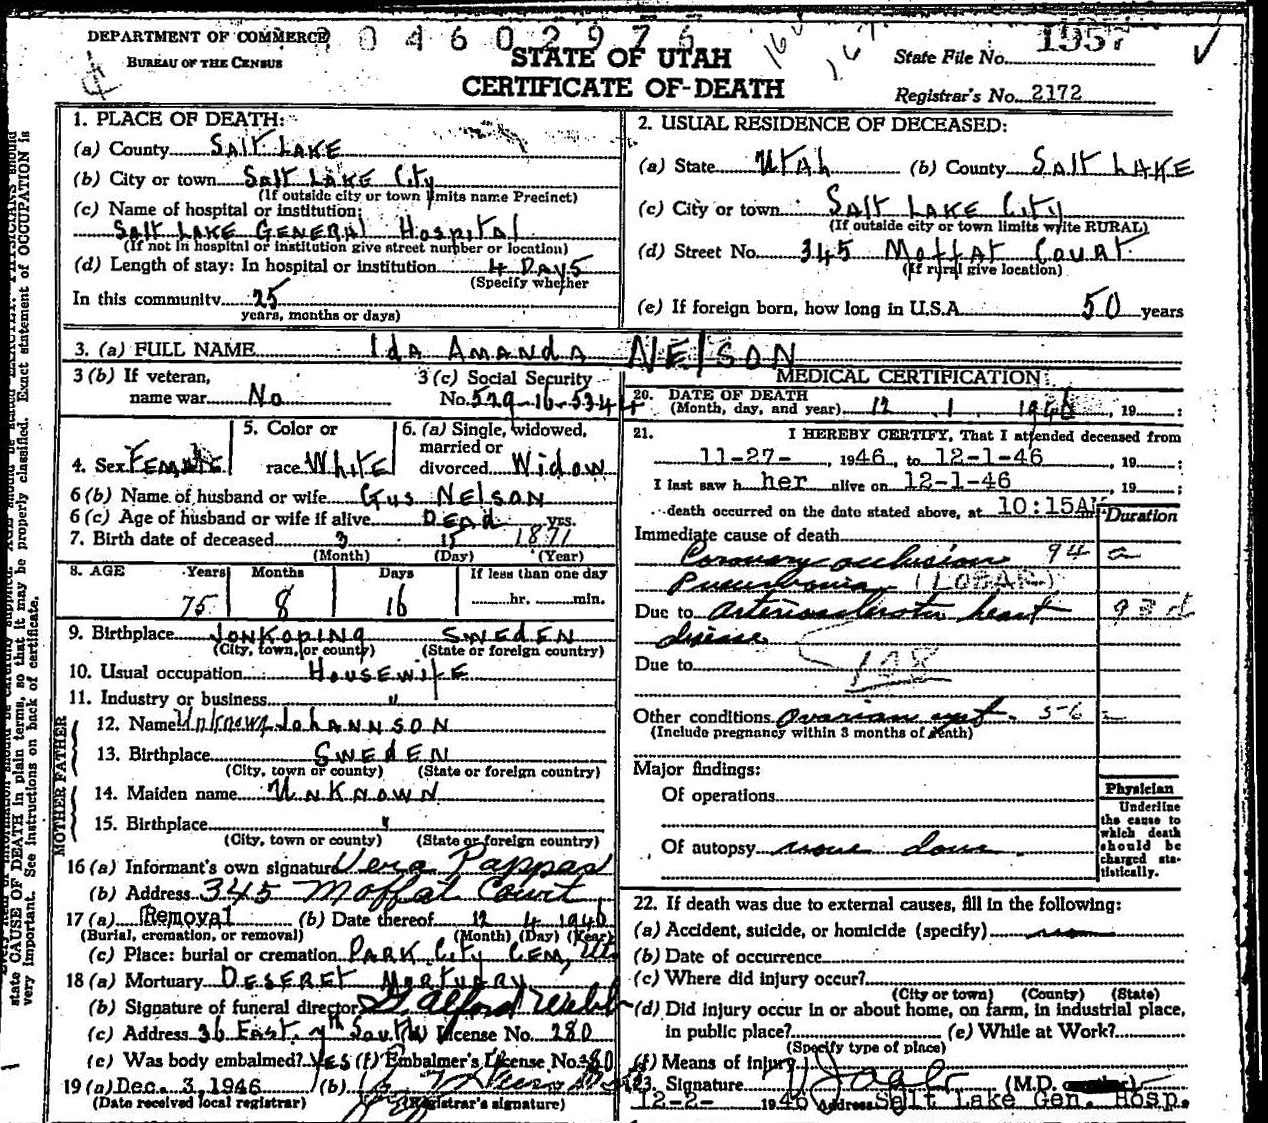 DEPARTMENT OF COMMERCE
BUREAU OF THE CENSUS
0 4 6 0 2 9 7 6
STATE OF UTAH
CERTIFICATE OF DEATH
State File No. 1957
Registrar's No. 2172
1. PLACE OF DEATH:
(a) County SALT LAKE
(b) City or town SALT LAKE City
(If outside city or town limits name Precinct)
(c) Name of hospital or institution:
SALT LAKE GENERAL Hospital
(If not in hospital or institution give street number or location)
(d) Length of stay: In hospital or institution 4 DAYS
(Specify whether
In this community 25
years, months or days)
2. USUAL RESIDENCE OF DECEASED:
(a) State UTAH (b) County SALT LAKE
(c) City or town SALT LAKE CITY
(If outside city or town limits write RURAL)
(d) Street No. 345 MOFFAT COURT
(If rural give location)
(e) If foreign born, how long in U.S.A. 50 years
3. (a) FULL NAME IDA AMANDA NELSON
3 (b) If veteran,
name war No
3 (c) Social Security
No. 529-16-5344
4. Sex FEMALE
5. Color or
race WHITE
6. (a) Single, widowed,
married or
divorced WIDOW
6 (b) Name of husband or wife GUS NELSON
6 (c) Age of husband or wife if alive DEAD yrs.
7. Birth date of deceased 3 15 1871
(Month) (Day) (Year)
8. AGE Years Months Days If less than one day
75 8 16 hr. min.
9. Birthplace JONKOPING SWEDEN
(City, town, or county) (State or foreign country)
10. Usual occupation HOUSEWIFE
11. Industry or business "
FATHER
12. Name Unknown JOHANNSON
13. Birthplace SWEDEN
(City, town or county) (State or foreign country)
MOTHER
14. Maiden name UNKNOWN
15. Birthplace "
(City, town or county) (State or foreign country)
16 (a) Informant's own signature Vera Pappas
(b) Address 345 Moffat Court
17 (a) Removal (b) Date thereof 12 4 1946
(Burial, cremation, or removal) (Month) (Day) (Year)
(c) Place: burial or cremation PARK CITY CEM, Ut
18 (a) Mortuary DESERET MORTUARY
(b) Signature of funeral director
(c) Address 36 EAST 7th SOUTH License No. 280
(e) Was body embalmed? YES (f) Embalmer's License No. 280
19 (a) Dec. 3, 1946 (b)
(Date received local registrar) (Registrar's signature)
MEDICAL CERTIFICATION
20. DATE OF DEATH
(Month, day, and year) 12 1 1946, 19 ;
21. I HEREBY CERTIFY, That I attended deceased from
11-27-, 1946, to 12-1-46, 19 ;
I last saw h her alive on 12-1-46, 19 ;
death occurred on the date stated above, at 10:15AM
Duration
Immediate cause of death
Coronary occlusion 94 a
Pneumonia (LOBAR)
Due to arteriosclerotic heart 93 d
disease
108
Due to
Other conditions Ovarian cyst. 56
(Include pregnancy within 3 months of death)
Major findings:
Of operations
Of autopsy none done
Physician
Underline
the cause to
which death
should be
charged sta-
tistically.
22. If death was due to external causes, fill in the following:
(a) Accident, suicide, or homicide (specify)
(b) Date of occurrence
(c) Where did injury occur?
(City or town) (County) (State)
(d) Did injury occur in or about home, on farm, in industrial place,
in public place? (e) While at Work?
(Specify type of place)
(f) Means of injury
23. Signature (M.D.
12-2- 1946 Address Salt Lake Gen. Hosp.
state CAUSE OF DEATH in plain terms, so that it may be properly classified. Exact statement of OCCUPATION is
very important. See instructions on back of certificate.